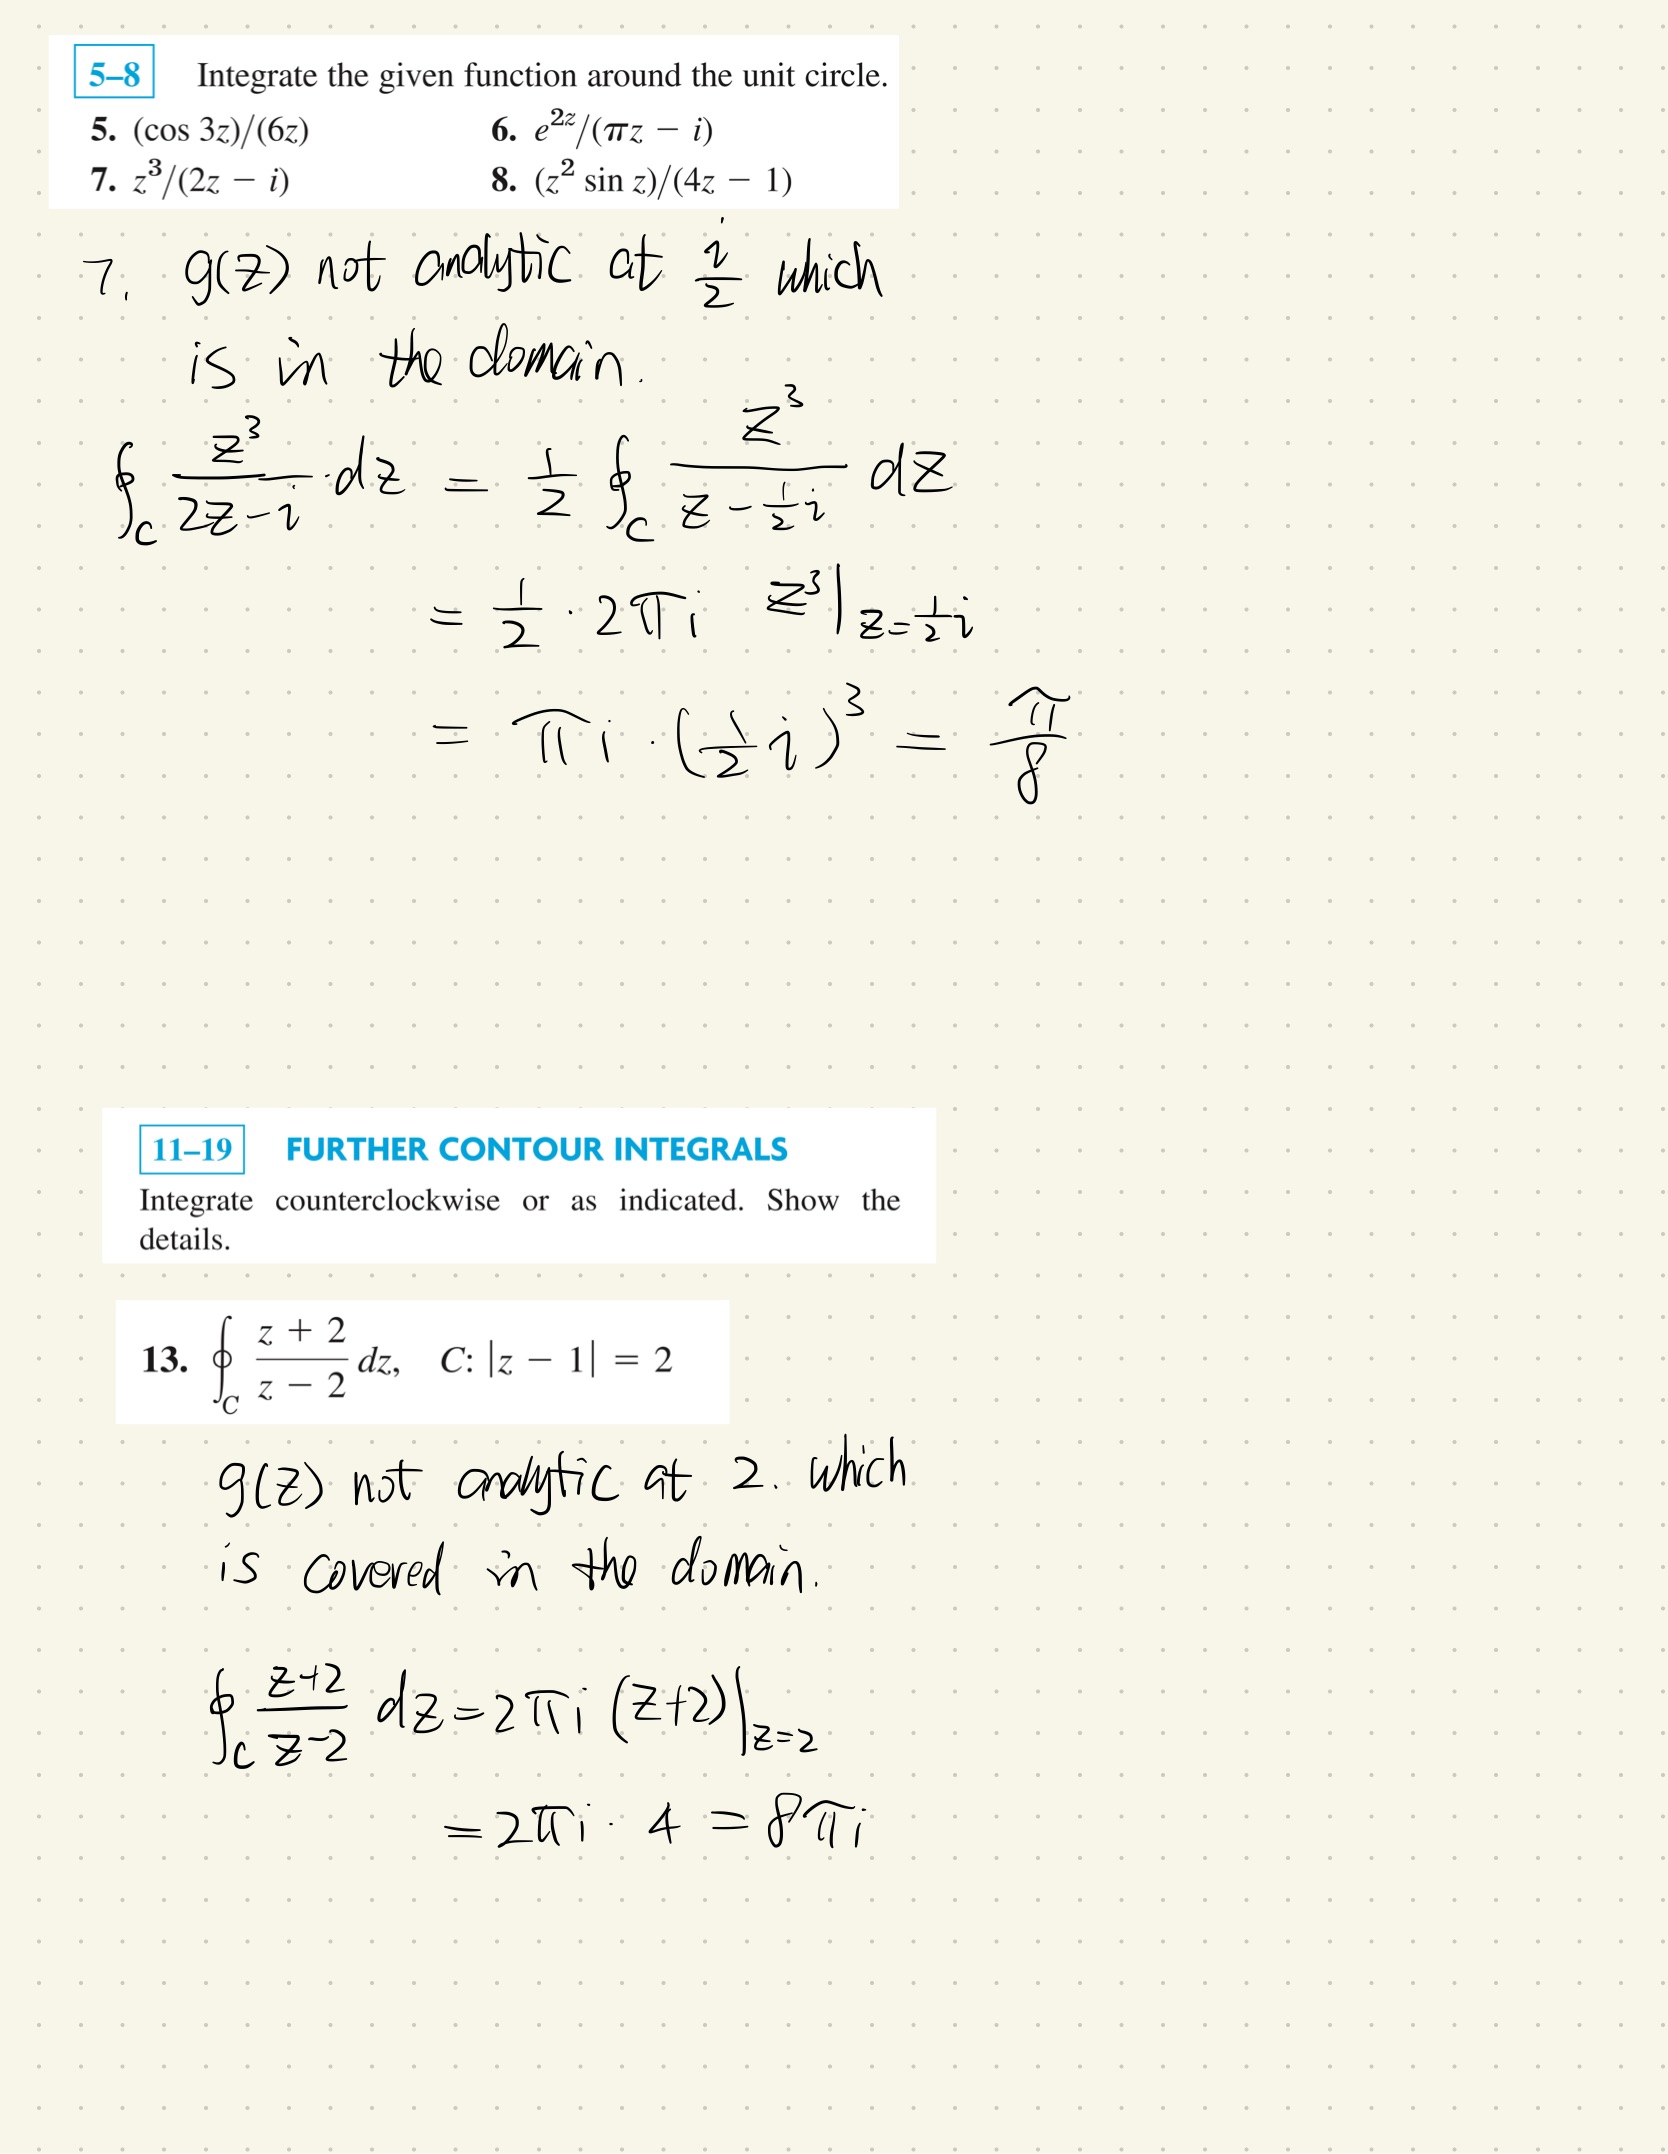 5–8 Integrate the given function around the unit circle.
5. (cos 3z)/(6z) 6. e^{2z}/(πz − i)
7. z³/(2z − i) 8. (z² sin z)/(4z − 1)
7. g(z) not analytic at i/2 which
is in the domain.
∮_C z³/(2z−i) · dz = 1/2 ∮_C z³/(z − 1/2 i) dz
= 1/2 · 2πi z³|_{z=1/2 i}
= πi · (1/2 i)³ = π/8
11–19 FURTHER CONTOUR INTEGRALS
Integrate counterclockwise or as indicated. Show the
details.
13. ∮_C (z + 2)/(z − 2) dz, C: |z − 1| = 2
g(z) not analytic at 2. which
is covered in the domain.
∮_C (z+2)/(z−2) dz = 2πi (z+2)|_{z=2}
= 2πi · 4 = 8πi